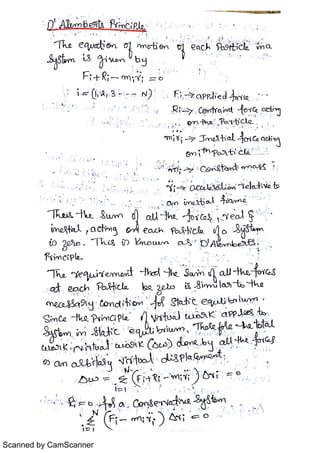 D' Alemberts Principle
The equation of motion of each Particle in a
System is given by
Fi + Ri - mi r̈i = 0
i = (1,2,3 - - - N) Fi → applied force
Ri → Contraint force acting
on the Particle
mi r̈i → Inertial force acting
on ith Particle
mi → Constant mass
r̈i → acceleration relative to
an inertial frame
Thus the Sum of all the forces, real &
inertial, acting on each Particle of a System
is zero. This is known as D'Alemberts
Principle.
The requirement that the Sum of all the forces
at each Particle be zero is similar to the
necessary condition for Static equilibrium.
Since the Principle of Virtual work applies to
System in static equilibrium, Therefore the total
work, virtual work (Δw) done by all the forces
is an arbitary virtual displacement:
Δw = Σ (Fi + Ri - mi r̈i) Δri = 0
i=1
Ri = 0 for a Conservative System
N
Σ (Fi - mi r̈i) Δri = 0
i=1
Scanned by CamScanner